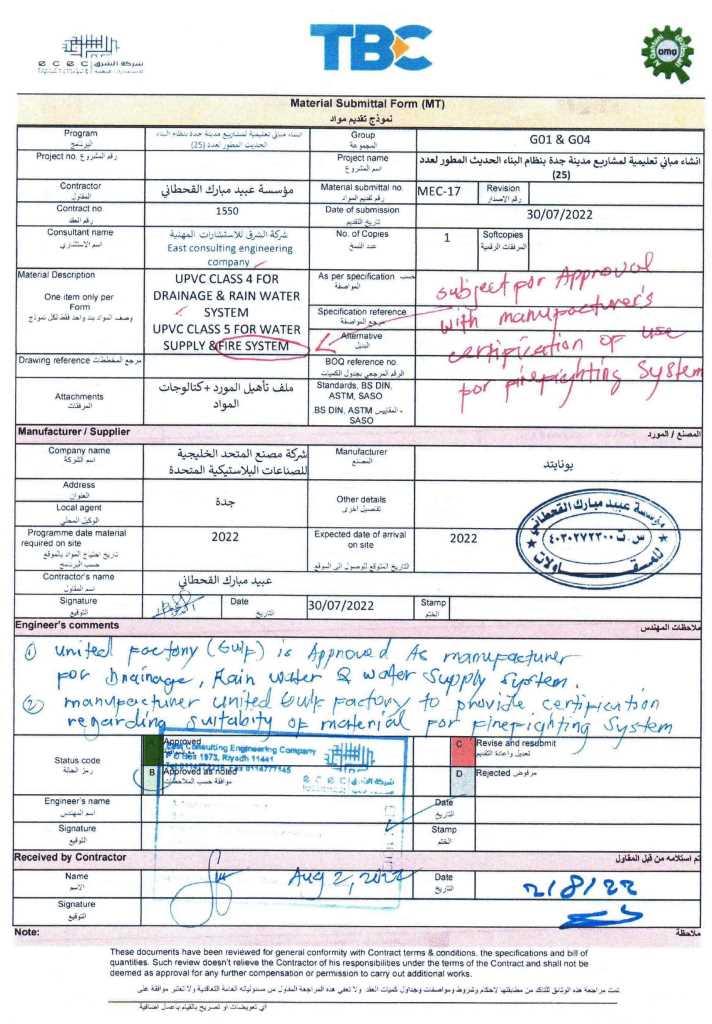 ECEC
شركة الشرق
TBC
OMQ
Material Submittal Form (MT)
نموذج تقديم مواد
Program
البرنامج
انشاء مباني تعليمية لمشاريع مدينة جدة بنظام البناء الحديث المطور لعدد (25)
Group
المجموعة
G01 & G04
Project no. رقم المشروع
Project name
اسم المشروع
انشاء مباني تعليمية لمشاريع مدينة جدة بنظام البناء الحديث المطور لعدد
(25)
Contractor
المقاول
مؤسسة عبيد مبارك القحطاني
Material submittal no.
رقم تقديم المواد
MEC-17
Revision
رقم الاصدار
Contract no.
رقم العقد
1550
Date of submission
تاريخ التقديم
30/07/2022
Consultant name
اسم الاستشاري
شركة الشرق للاستشارات المهنية
East consulting engineering
company
No. of Copies
عدد النسخ
1
Softcopies
المرفقات الرقمية
Material Description
One item only per
Form
وصف المواد بند واحد فقط لكل نموذج
UPVC CLASS 4 FOR
DRAINAGE & RAIN WATER
SYSTEM
UPVC CLASS 5 FOR WATER
SUPPLY & FIRE SYSTEM
As per specification حسب
المواصفة
Specification reference
مرجع المواصفة
Alternative
البديل
subject for Approval
with manufacturer's
certification of use
for firefighting System
Drawing reference مرجع المخططات
BOQ reference no.
الرقم المرجعي بجدول الكميات
Attachments
المرفقات
ملف تأهيل المورد + كتالوجات
المواد
Standards, BS DIN,
ASTM, SASO
المقاييس - BS DIN, ASTM
SASO
Manufacturer / Supplier
المصنع / المورد
Company name
اسم الشركة
شركة مصنع المتحد الخليجية
للصناعات البلاستيكية المتحدة
Manufacturer
المصنع
يونايتد
Address
العنوان
Local agent
الوكيل المحلي
جدة
Other details
تفاصيل اخرى
مؤسسة عبيد مبارك القحطاني
س.ت ٤٠٣٠٢٧٢٣٠٠
للمقاولات
Programme date material
required on site
تاريخ احتياج المواد بالموقع
حسب البرنامج
2022
Expected date of arrival
on site
التاريخ المتوقع للوصول الى الموقع
2022
Contractor's name
اسم المقاول
عبيد مبارك القحطاني
Signature
التوقيع
Date
التاريخ
30/07/2022
Stamp
الختم
Engineer's comments
ملاحظات المهندس
① United Factory (Gulf) is Approved As manufacturer
for Drainage, Rain water & water Supply System.
② manufacturer united Gulf factory to provide certification
regarding suitabity of material for firefighting System
Status code
رمز الحالة
A
Approved
East Consulting Engineering Company
P O Box 1973, Riyadh 11441
B
Approved as noted
موافقة حسب الملاحظات
ECEC
شركة الشرق
C
Revise and resubmit
تعديل واعادة التقديم
D
Rejected مرفوض
Engineer's name
اسم المهندس
Date
التاريخ
Signature
التوقيع
Stamp
الختم
Received by Contractor
تم استلامه من قبل المقاول
Name
الاسم
Aug 2, 2022
Date
التاريخ
2/8/22
Signature
التوقيع
Note:
ملاحظة
These documents have been reviewed for general conformity with Contract terms & conditions, the specifications and bill of
quantities. Such review doesn't relieve the Contractor of his responsibilities under the terms of the Contract and shall not be
deemed as approval for any further compensation or permission to carry out additional works.
تمت مراجعة هذه الوثائق للتأكد من مطابقتها لاحكام وشروط ومواصفات وجداول كميات العقد ولا تعفي هذه المراجعة المقاول من مسئولياته العامة التعاقدية ولا تعتبر موافقة على
اي تعويضات او تصريح بالقيام باعمال اضافية